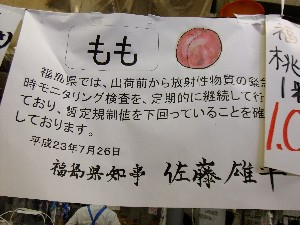 もも
福島県では、出荷前から放射性物質の緊急
時モニタリング検査を、定期的に継続して行
ており、暫定規制値を下回っていることを確
しております。
平成23年7月26日
福島県知事 佐藤雄平
福
桃
1
1.0